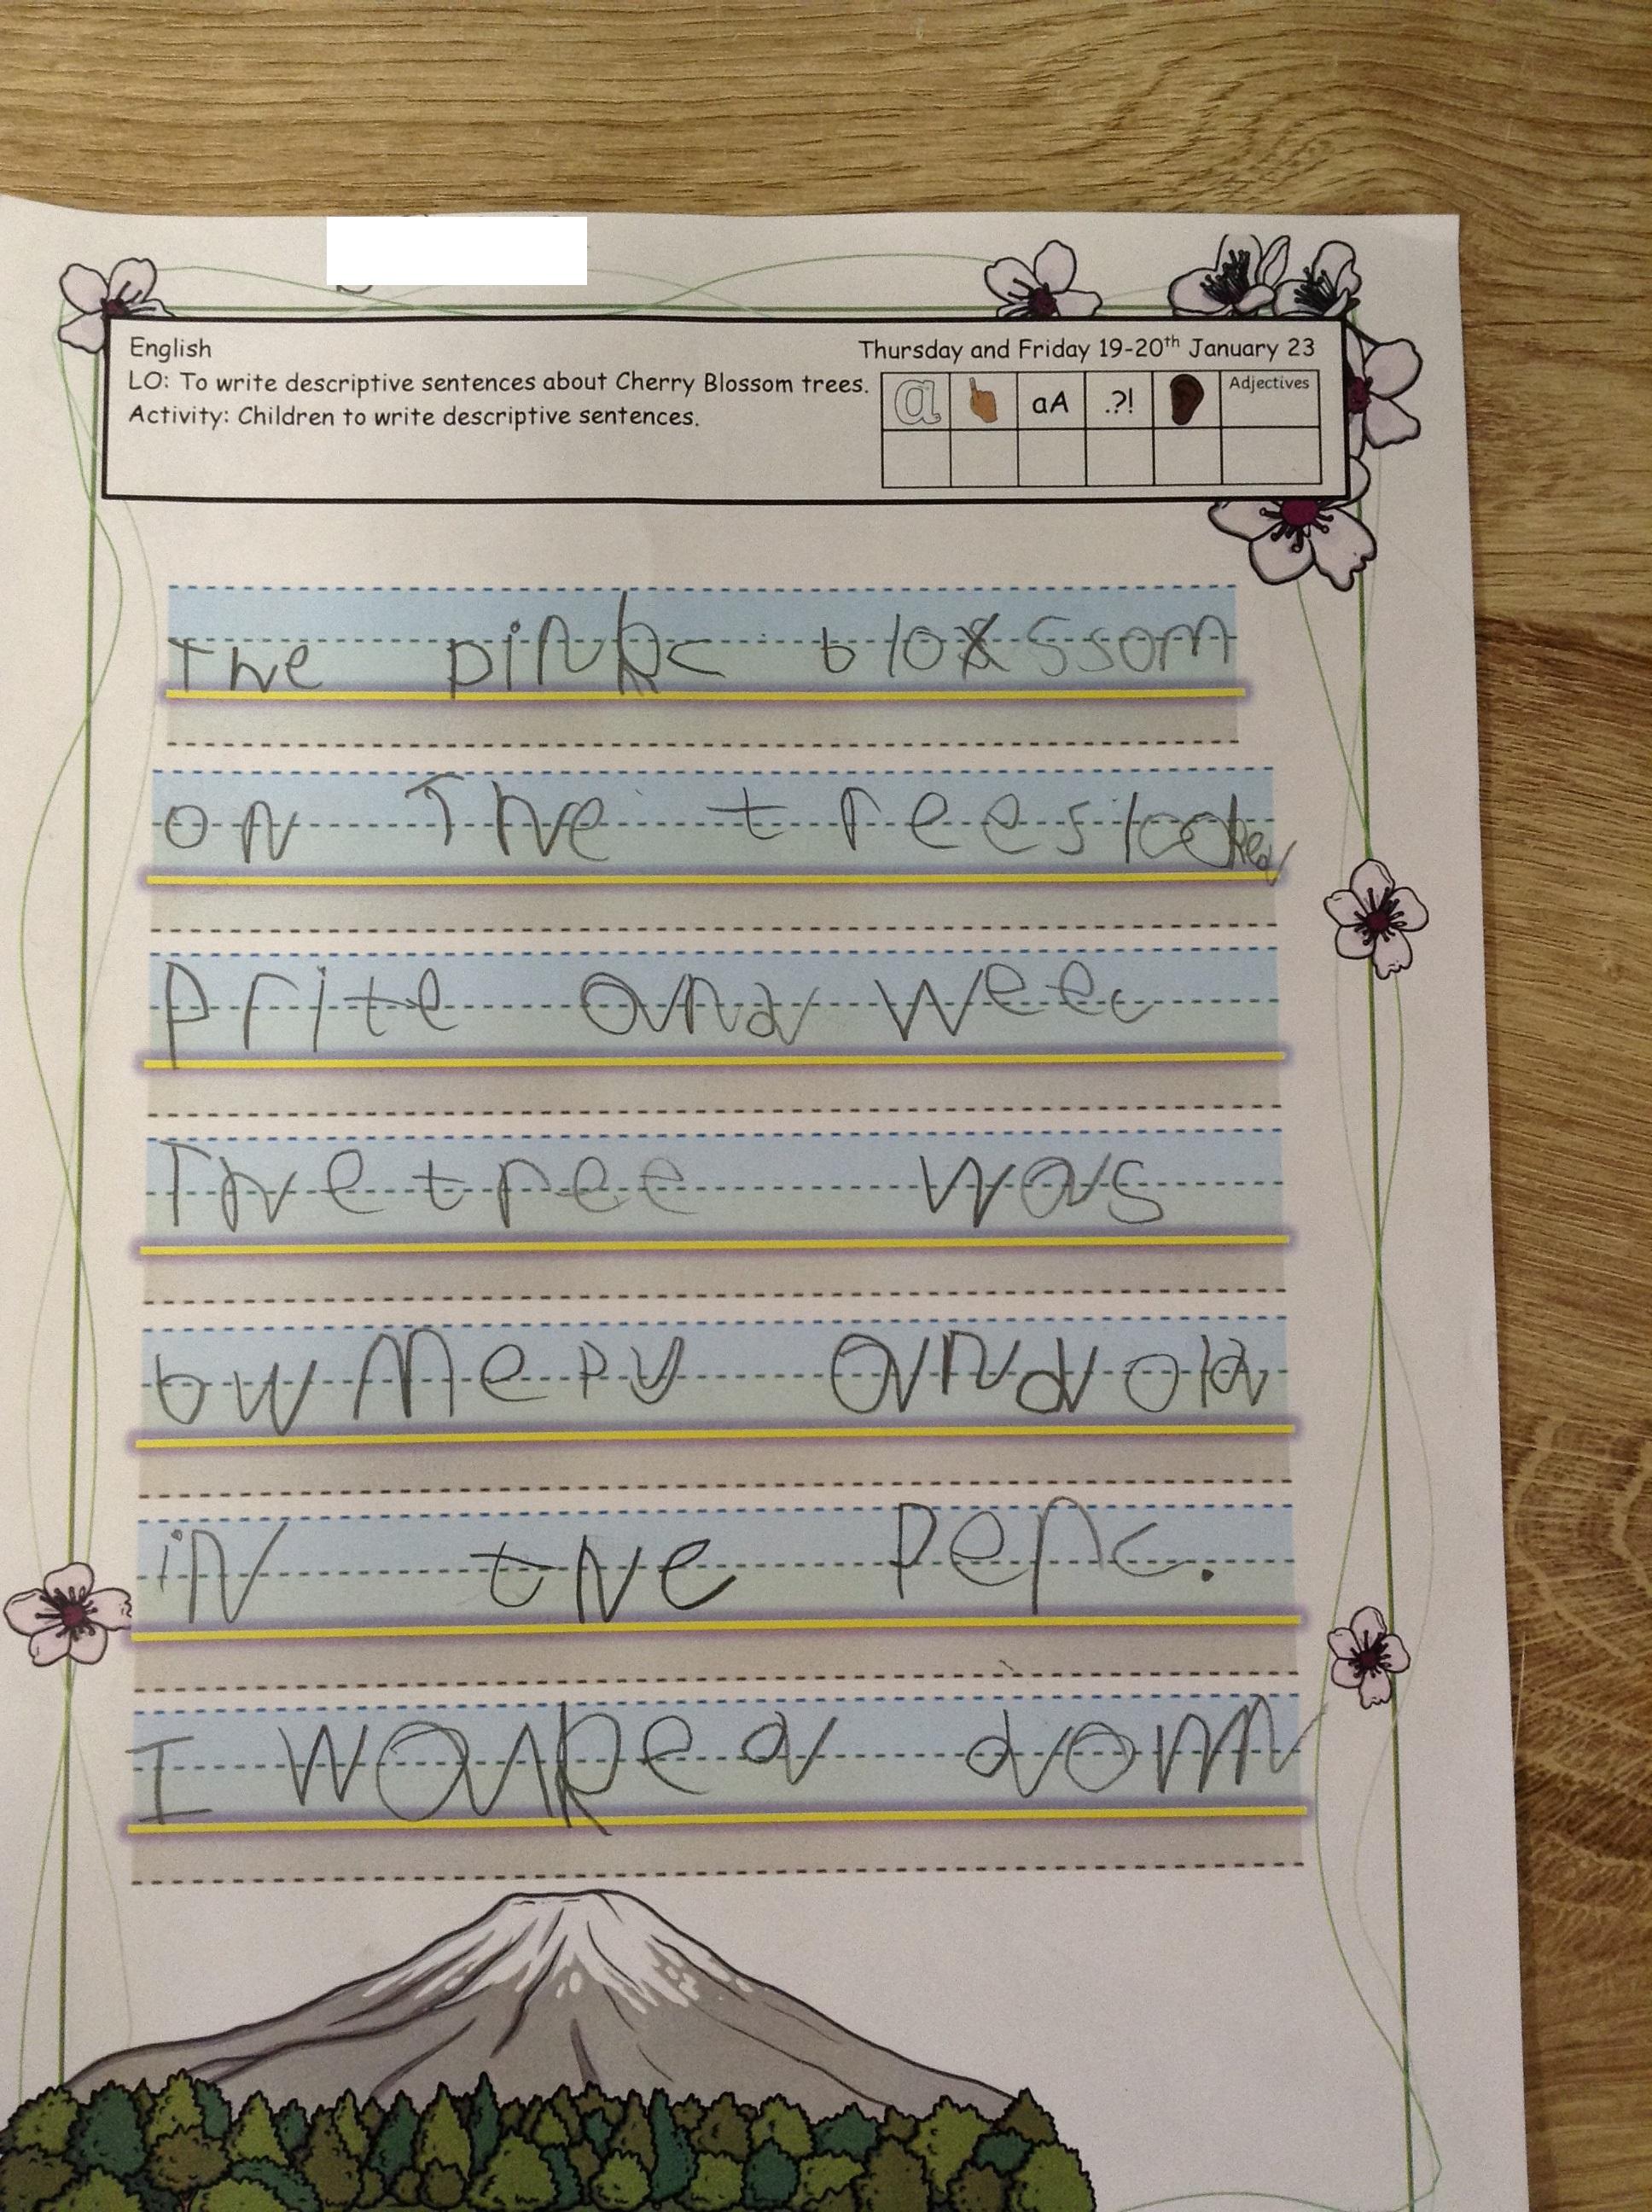 English
Thursday and Friday 19-20th January 23
LO: To write descriptive sentences about Cherry Blossom trees.
Activity: Children to write descriptive sentences.
a aA .?! Adjectives
The pink blossom
on The trees looked
prite and weec
The tree was
bumepy and old
in the perc.
I waked dom